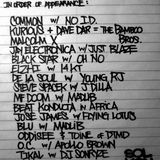 IN ORDER OF APPEARANCE:
COMMON w/ NO I.D.
KURIOUS + DAVE DAR = THE BAMBOO
BROS
MALCOLM X
JAY ELECTRONICA w/ JUST BLAZE
BLACK STAR w/ OH NO
EZHI w/ 14KT
DE LA SOUL w/ YOUNG RJ
STEVE SPACEK w/ J DILLA
MF DOOM w/ MADLIB
BEAT KONDUCTA IN AFRICA
JOSÉ JAMES w/ FLYING LOTUS
BLU w/ MADLIB
ODDISEE + TONE of DTMD
O.C. w/ APOLLO BROWN
TIKAL w/ DJ SONYZE
SOL